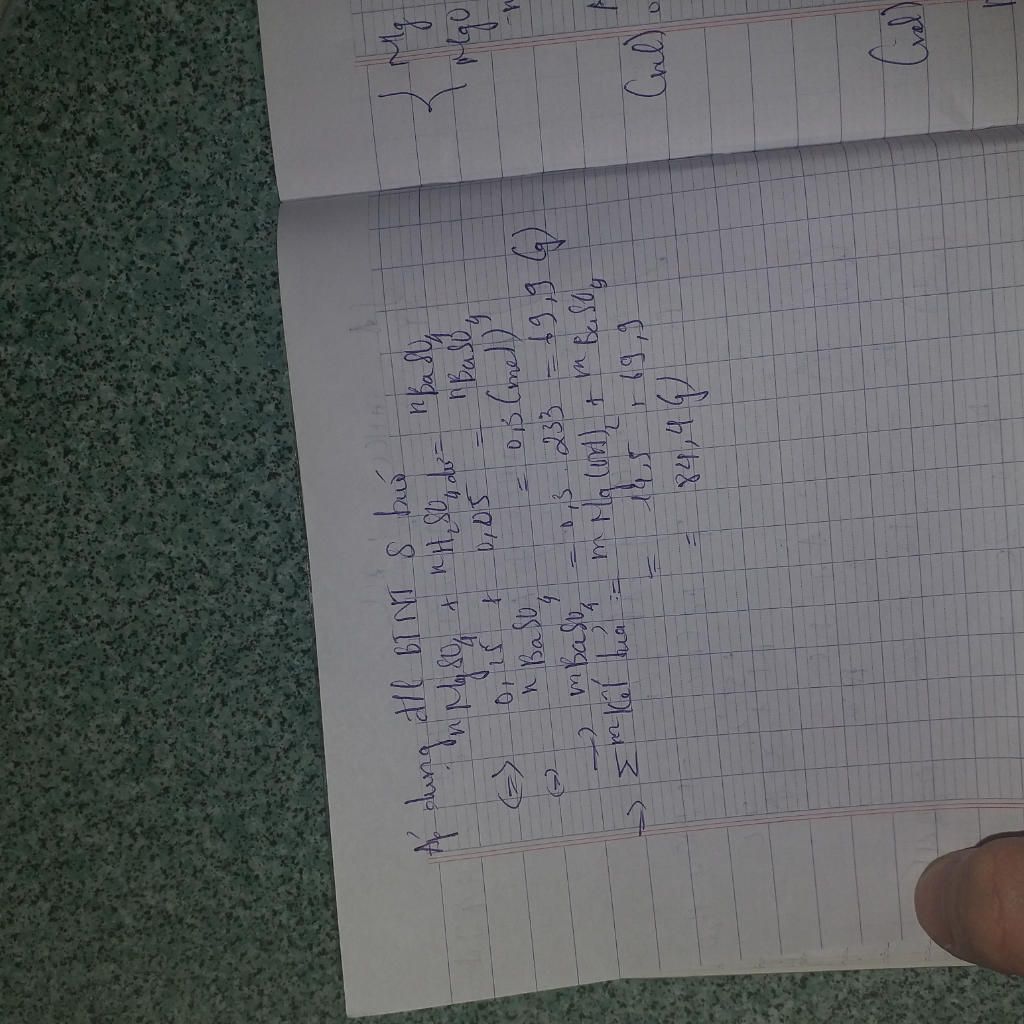 Áp dụng đll BTNT S có
nMgSO4 + nH2SO4 dư = nBaSO4
(=) 0,25 + 0,05 = nBaSO4
(=) nBaSO4 = 0,3 (mol)
→ mBaSO4 = 0,3 . 233 = 69,9 (g)
=> ∑ m kết tủa = mMg(OH)2 + mBaSO4
= 14,5 + 69,9
= 84,4 (g)
{ Mg
MgO
(mol)
(mol)